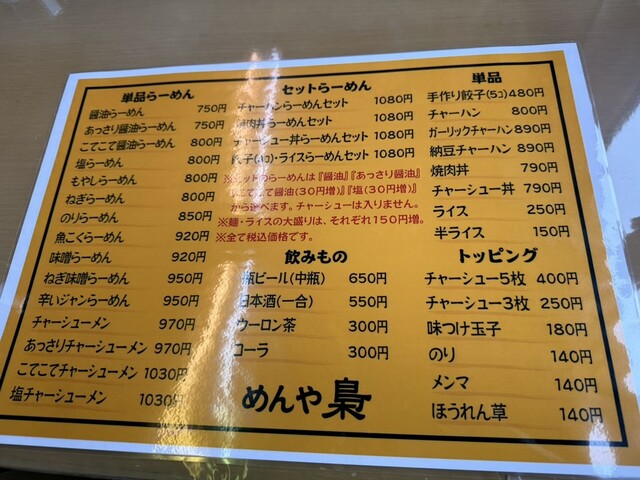 単品らーめん
醤油らーめん 750円
あっさり醤油らーめん 750円
こてこて醤油らーめん 800円
塩らーめん 800円
もやしらーめん 800円
ねぎらーめん 800円
のりらーめん 850円
魚こくらーめん 920円
味噌らーめん 920円
ねぎ味噌らーめん 950円
辛いジャンらーめん 950円
チャーシューメン 970円
あっさりチャーシューメン 970円
こてこてチャーシューメン 1030円
塩チャーシューメン 1030円
セットらーめん
チャーハンらーめんセット 1080円
焼肉丼らーめんセット 1080円
チャーシュー丼らーめんセット 1080円
餃子(3コ)・ライスらーめんセット 1080円
※セットのらーめんは『醤油』『あっさり醤油』
『こてこて醤油(30円増)』『塩(30円増)』
から選べます。チャーシューは入りません。
※麺・ライスの大盛りは、それぞれ150円増。
※全て税込価格です。
飲みもの
瓶ビール(中瓶) 650円
日本酒(一合) 550円
ウーロン茶 300円
コーラ 300円
めんや梟
単品
手作り餃子(5コ) 480円
チャーハン 800円
ガーリックチャーハン 890円
納豆チャーハン 890円
焼肉丼 790円
チャーシュー丼 790円
ライス 250円
半ライス 150円
トッピング
チャーシュー5枚 400円
チャーシュー3枚 250円
味つけ玉子 180円
のり 140円
メンマ 140円
ほうれん草 140円